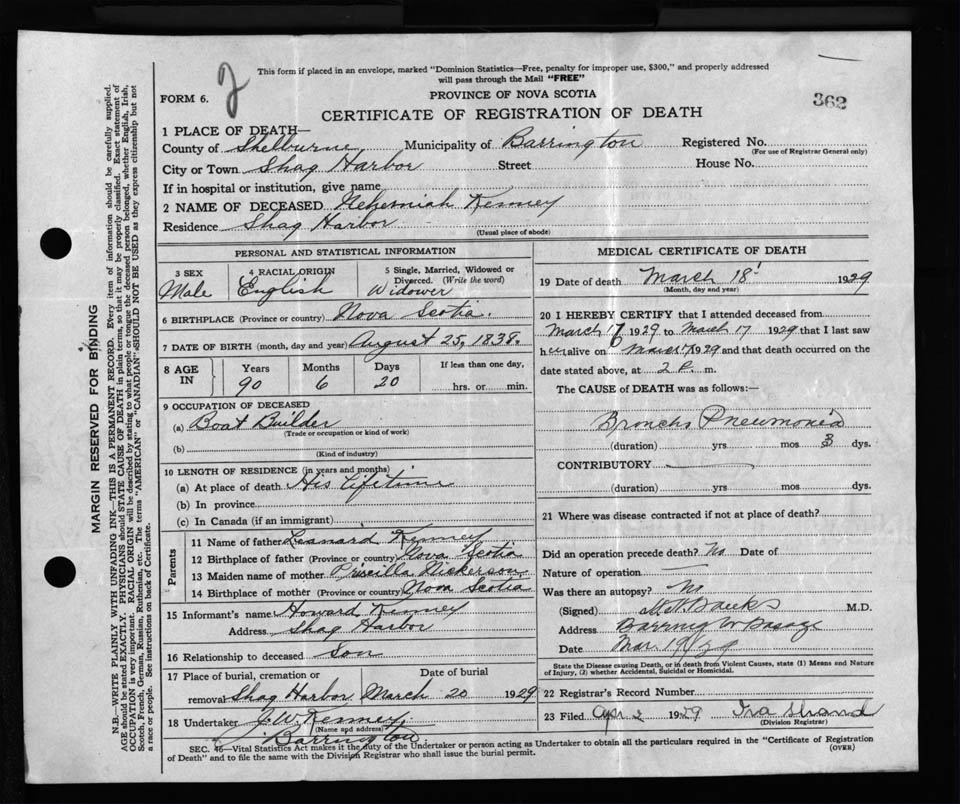 This form if placed in an envelope, marked "Dominion Statistics—Free, penalty for improper use, $300," and properly addressed
will pass through the Mail "FREE"
FORM 6. 2 PROVINCE OF NOVA SCOTIA 362
CERTIFICATE OF REGISTRATION OF DEATH
1 PLACE OF DEATH—
County of Shelburne Municipality of Barrington Registered No.
(For use of Registrar General only)
City or Town Shag Harbor Street House No.
If in hospital or institution, give name
2 NAME OF DECEASED Nehemiah Kenney
Residence Shag Harbor
(Usual place of abode)
PERSONAL AND STATISTICAL INFORMATION
3 SEX 4 RACIAL ORIGIN 5 Single, Married, Widowed or
Divorced. (Write the word)
Male English Widower
6 BIRTHPLACE (Province or country) Nova Scotia.
7 DATE OF BIRTH (month, day and year) August 25, 1838.
8 AGE IN Years Months Days If less than one day,
90 6 20 hrs. or min.
9 OCCUPATION OF DECEASED
(a) Boat Builder
(Trade or occupation or kind of work)
(b)
(Kind of industry)
10 LENGTH OF RESIDENCE (in years and months)
(a) At place of death His Lifetime
(b) In province
(c) In Canada (if an immigrant)
Parents
11 Name of father Leanard Kenney
12 Birthplace of father (Province or country) Nova Scotia
13 Maiden name of mother Priscilla Nickerson
14 Birthplace of mother (Province or country) Nova Scotia
15 Informant's name Howard Kenney
Address Shag Harbor
16 Relationship to deceased Son
17 Place of burial, cremation or Date of burial
removal Shag Harbor March 20 1929
18 Undertaker J.W. Kenney,
(Name and address)
Barrington
MEDICAL CERTIFICATE OF DEATH
19 Date of death March 18 1929
(Month, day and year)
20 I HEREBY CERTIFY that I attended deceased from
March 1929 to March 17 1929 that I last saw
h alive on March 17 1929 and that death occurred on the
date stated above, at 2 P. m.
The CAUSE of DEATH was as follows:—
Broncho Pneumonia
(duration) yrs mos 3 dys.
CONTRIBUTORY
(duration) yrs mos dys.
21 Where was disease contracted if not at place of death?
Did an operation precede death? No Date of
Nature of operation —
Was there an autopsy? No
(Signed) Banks M.D.
Address Barring
Date Mar. 19/29
State the Disease causing Death, or in death from Violent Causes, state (1) Means and Nature
of Injury, (2) whether Accidental, Suicidal or Homicidal.
22 Registrar's Record Number
23 Filed Apr 2 1929 Ira Shand
(Division Registrar)
SEC. 46—Vital Statistics Act makes it the duty of the Undertaker or person acting as Undertaker to obtain all the particulars required in the "Certificate of Registration
of Death" and to file the same with the Division Registrar who shall issue the burial permit. (OVER)
MARGIN RESERVED FOR BINDING
N.B.—WRITE PLAINLY WITH UNFADING INK—THIS IS A PERMANENT RECORD. Every item of information should be carefully supplied.
AGE should be stated EXACTLY. PHYSICIANS should STATE CAUSE OF DEATH in plain terms, so that it may be properly classified. Exact statement of
OCCUPATION is very important. RACIAL ORIGIN will be described by stating to what people or tongue the deceased person belonged, whether English, Irish,
Scotch, French, German, Russian, Ruthenian, etc. The terms "AMERICAN" or "CANADIAN" SHOULD NOT BE USED as they express citizenship but not
a race or people. See instructions on back of Certificate.